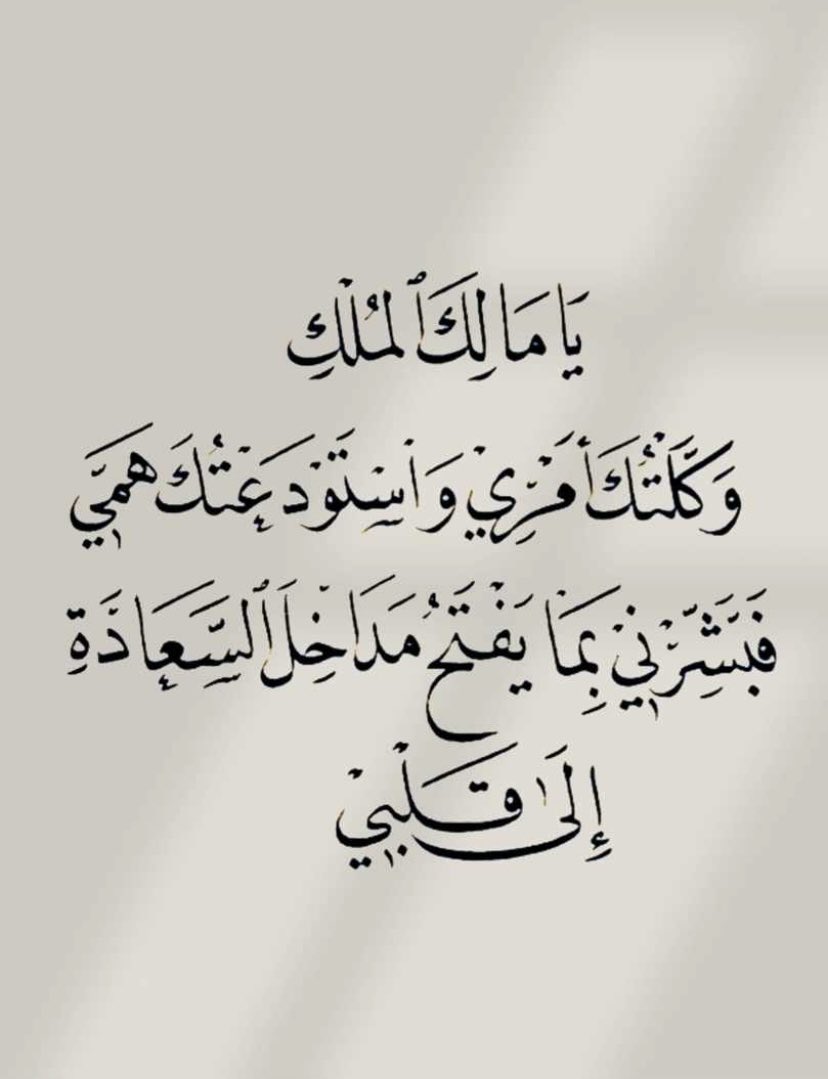 يَا مَالِكَ ٱلْمُلْكِ
وَكَّلْتُكَ أَمْرِيْ وَاسْتَوْدَعْتُكَ هَمِّي
فَبَشِّرْنِيْ بِمَا يَفْتَحُ مَدَاخِلَ ٱلسَّعَادَةِ
إِلَىٰ قَلْبِيْ